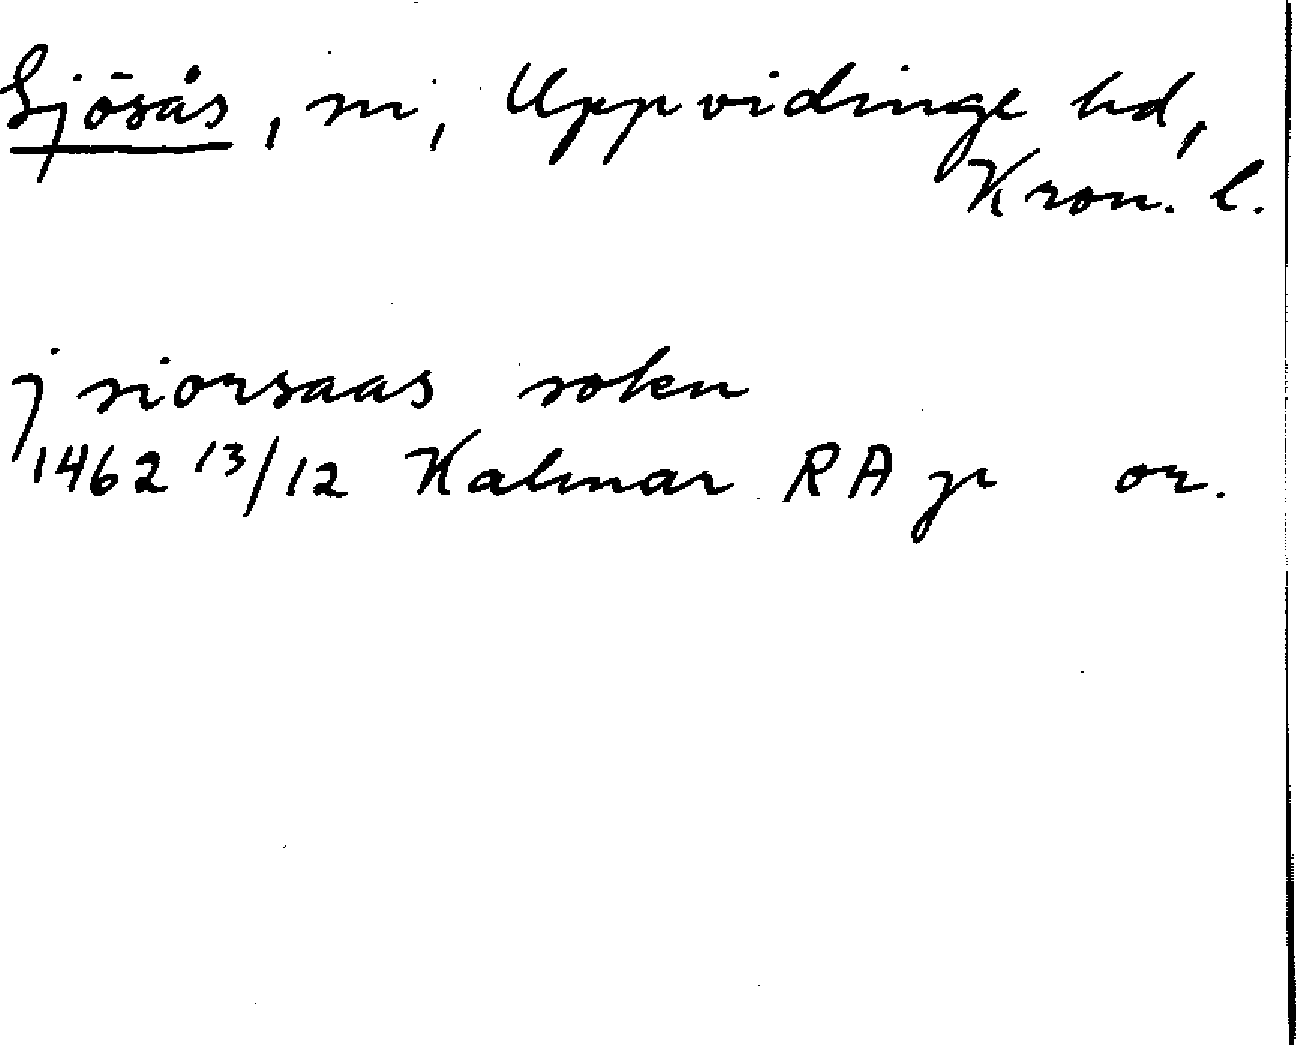 Sjösås, sn, Uppvidinge hd,
Kron. l.
j siorsaas sokn
1462 13/12 Kalmar RA pr or.